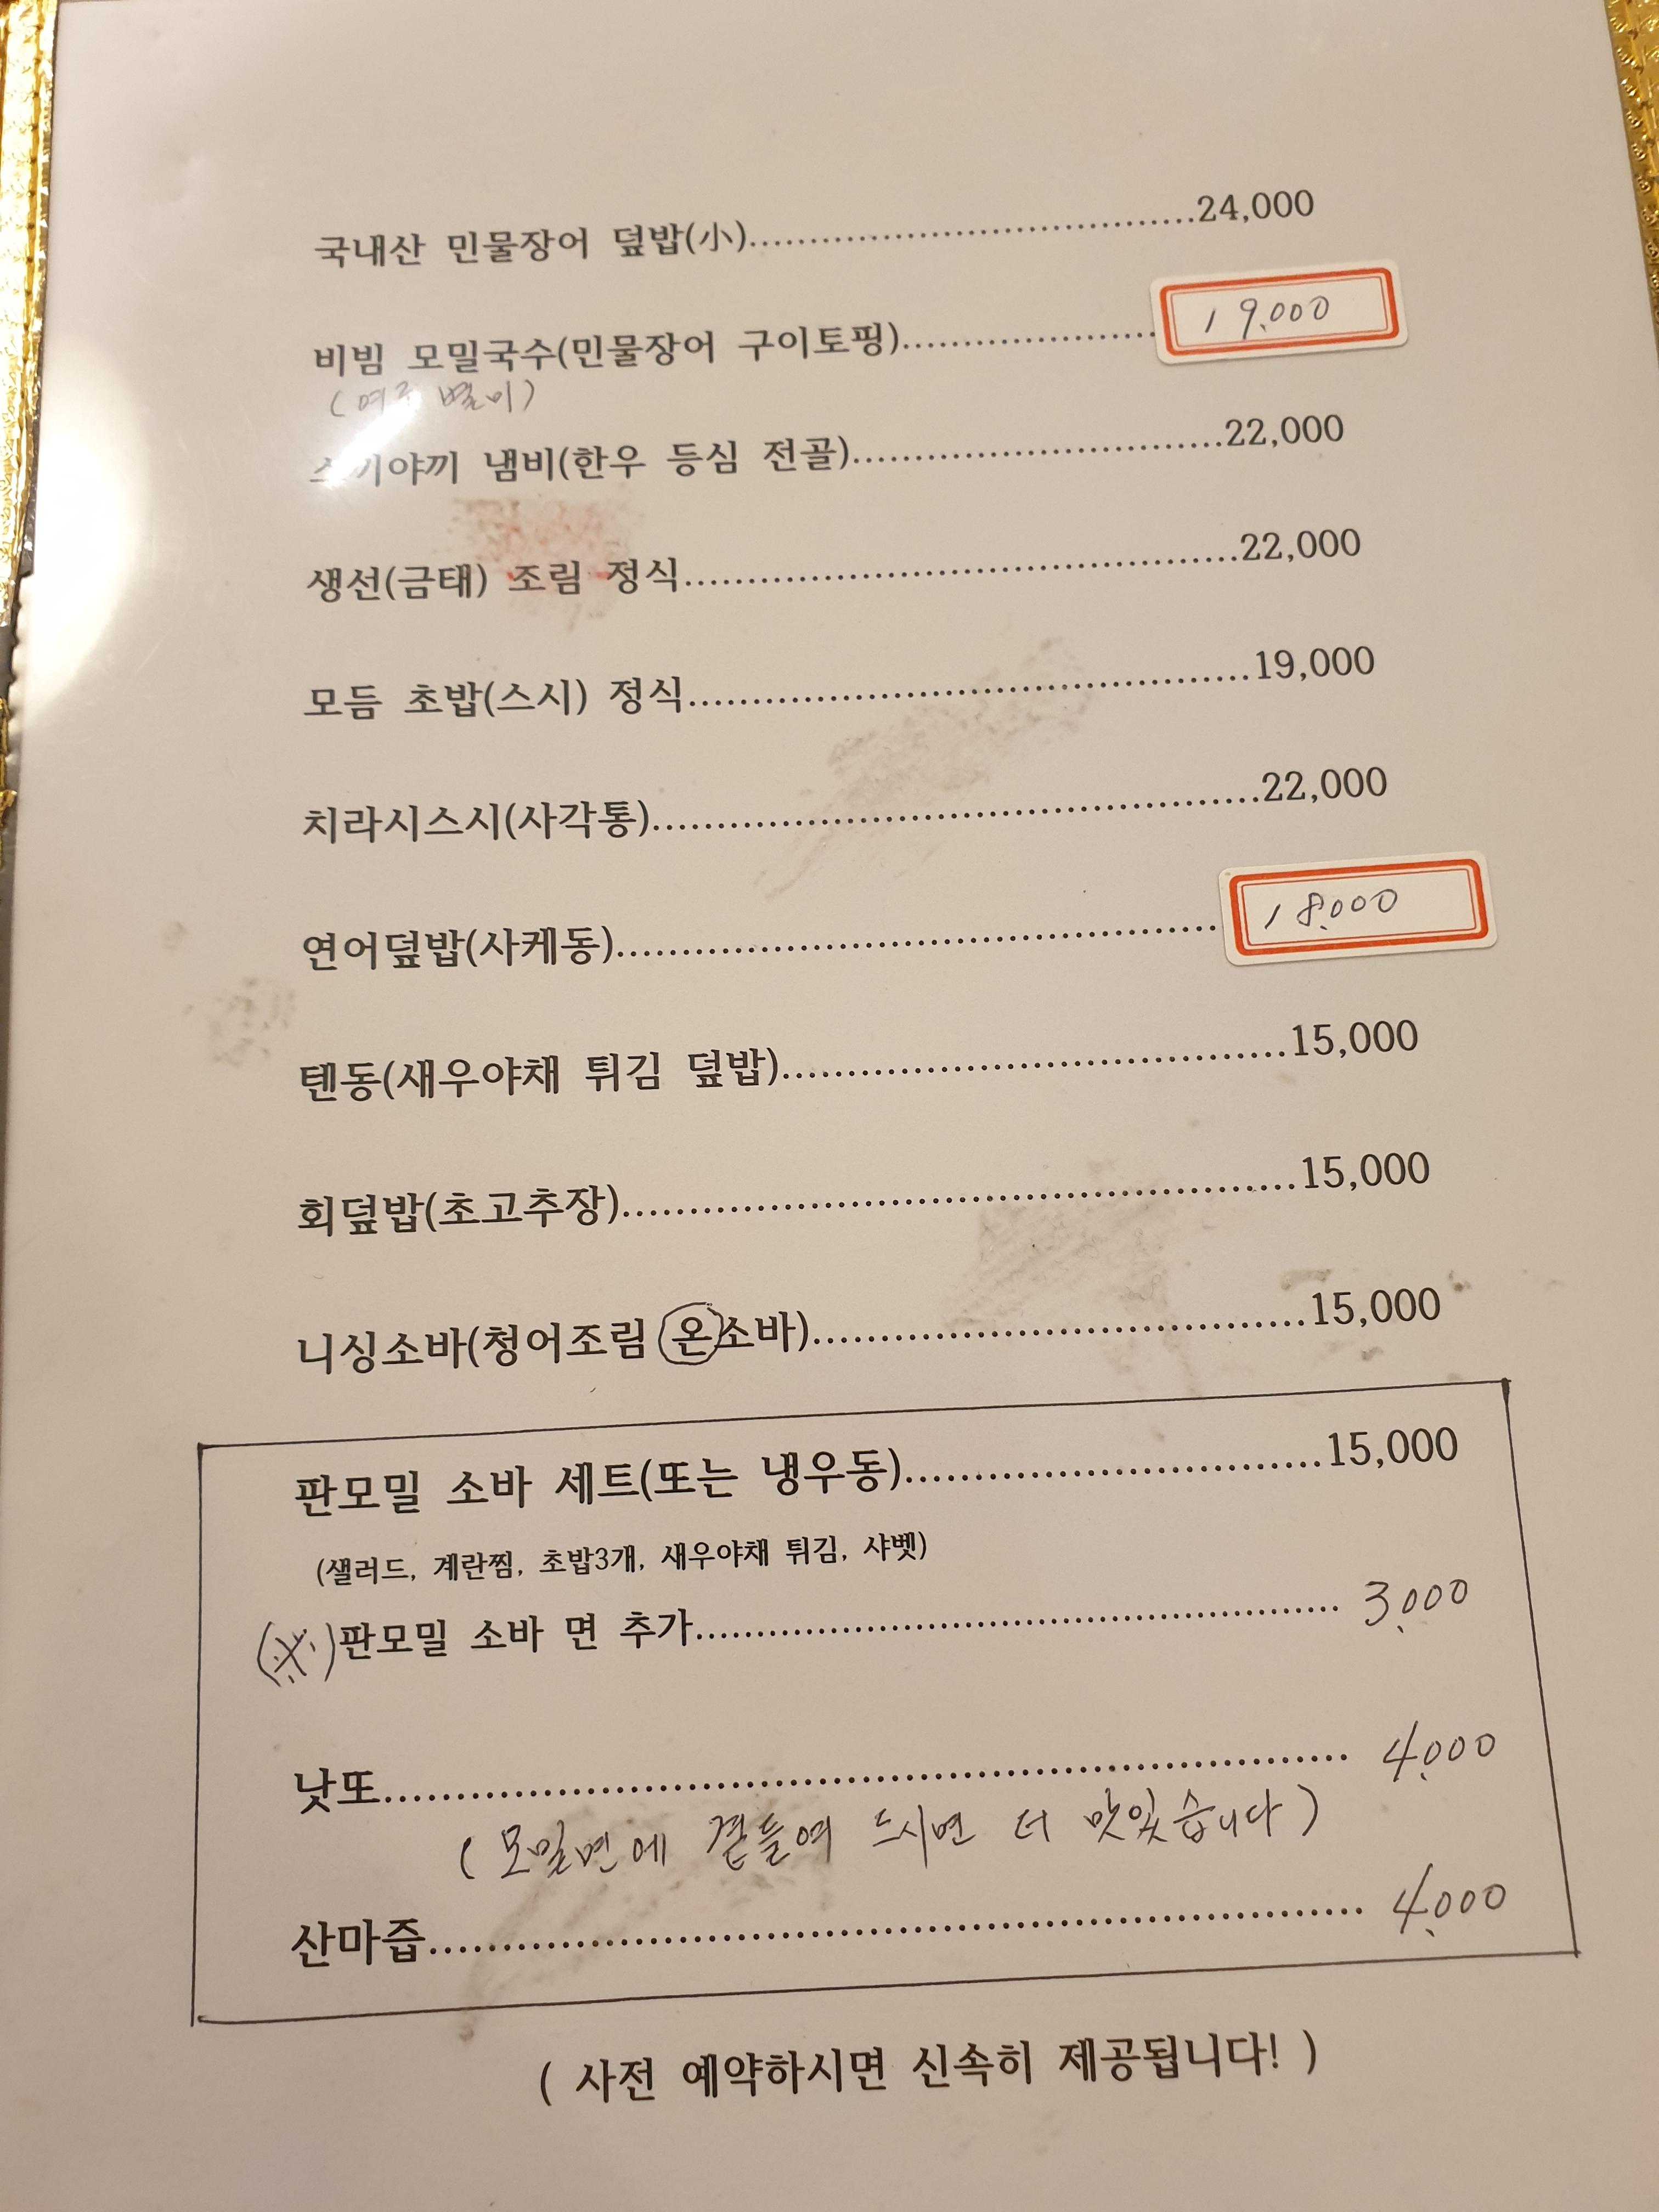 국내산 민물장어 덮밥(小)....................................24,000
비빔 모밀국수(민물장어 구이토핑)....................19,000
별미)
스끼야끼 냄비(한우 등심 전골).............................22,000
생선(금태) 조림 정식...........................................22,000
모듬 초밥(스시) 정식...........................................19,000
치라시스시(사각통)..............................................22,000
연어덮밥(사케동)..............................................18,000
텐동(새우야채 튀김 덮밥).....................................15,000
회덮밥(초고추장).................................................15,000
니싱소바(청어조림 온소바)....................................15,000
판모밀 소바 세트(또는 냉우동)...............................15,000
(샐러드, 계란찜, 초밥3개, 새우야채 튀김, 샤벳)
(※)판모밀 소바 면 추가.................................................. 3,000
낫또........................................................................ 4,000
(모밀면에 곁들여 드시면 더 맛있습니다)
산마즙..................................................................... 4,000
( 사전 예약하시면 신속히 제공됩니다! )